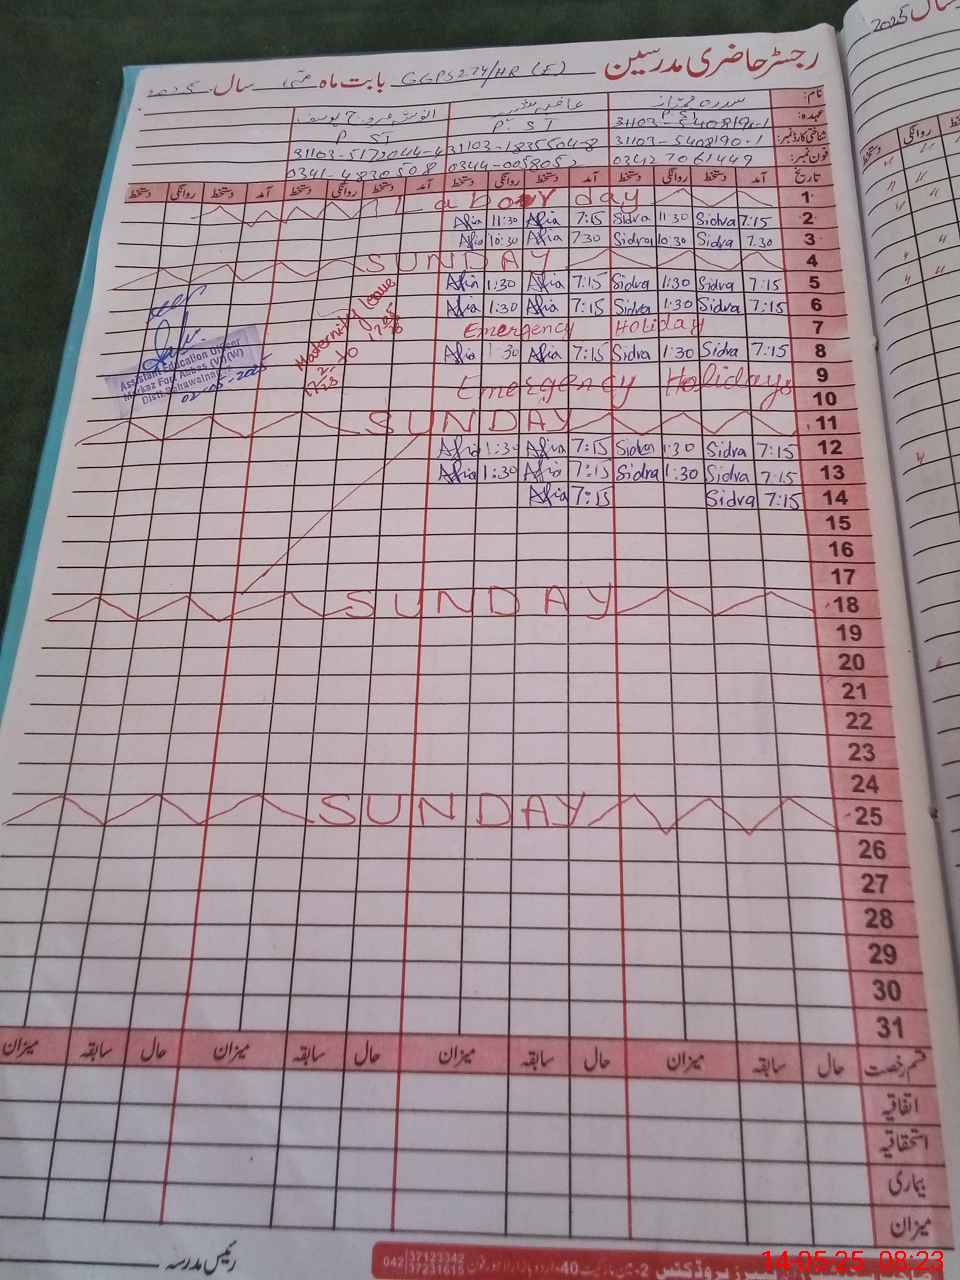 سال 2025
رجسٹر حاضری مدرسین GGPS 274/HR (E) بابت ماہ مئی سال 2025
نام:
عہدہ: P.S.T P. S T P ST
شناختی کارڈ نمبر: 31103-5408190-1 31103-1835504-8
فون نمبر: 03427061449 0341-4830508
تاریخ آمد دستخط روانگی دستخط آمد دستخط روانگی دستخط آمد دستخط روانگی دستخط آمد دستخط روانگی دستخط
1 Labour day
2 7:15 Sidra 11:30 Sidra 7:15 Afia 11:30 Afia
3 7:30 Sidra 10:30 Sidra 7:30 Afia 10:30 Afia
4 SUNDAY
5 7:15 Sidra 1:30 Sidra 7:15 Afia 1:30 Afia
6 7:15 Sidra 1:30 Sidra 7:15 Afia 1:30 Afia
7 Emergency Holiday
8 7:15 Sidra 1:30 Sidra 7:15 Afia 1:30 Afia
9 Emergency Holidays
10
11 SUNDAY
12 7:15 Sidra 1:30 Sidra 7:15 Afia 1:30 Afia
13 7:15 Sidra 1:30 Sidra 7:15 Afia 1:30 Afia
14 7:15 Sidra 7:15 Afia
15
16
17
18 SUNDAY
19
20
21
22
23
24
25 SUNDAY
26
27
28
29
30
31
Maternity leave
to
Assistant Education Officer
Markaz Fort Abbas (W)(VI)
Distt. Bahawalnagar
02-05-2025
قسم رخصت حال سابقہ میزان حال سابقہ میزان حال سابقہ میزان حال سابقہ میزان
اتفاقیہ
استحقاقیہ
بیماری
میزان
رئیس مدرسہ
042 37123342
37231615
14-05-25 08:23